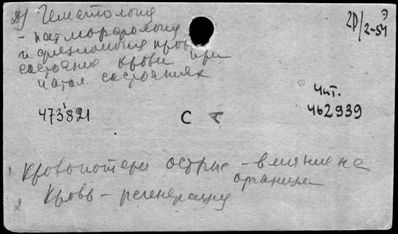 2) Гематология
2D/2-54
- пат. морфология
и физиология крови
состояние крови при
патол. состояниях
Чит.
473821
С А
462939
1 Кровопотери острые - влияние на
организм
2 Кровь - регенерация